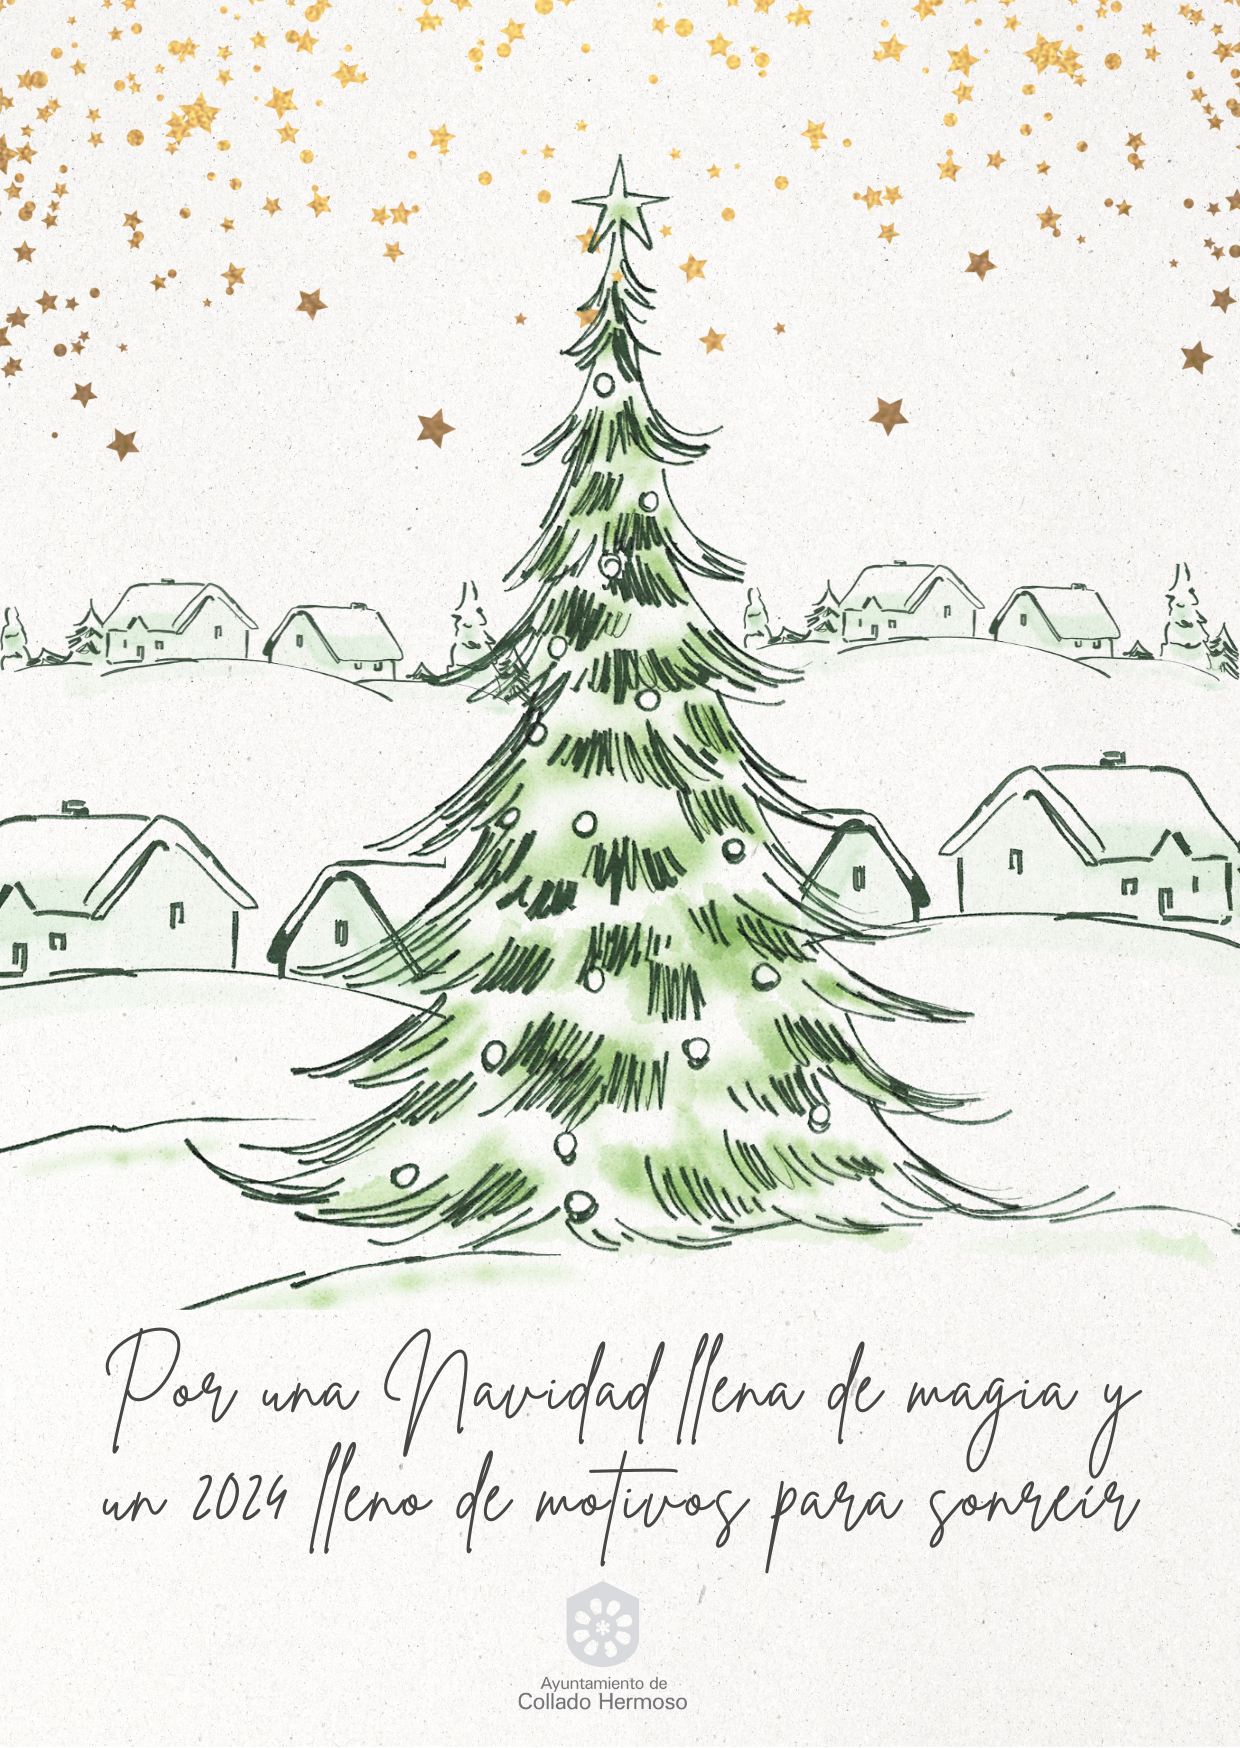 Por una Navidad llena de magia y
un 2024 lleno de motivos para sonreír
Ayuntamiento de
Collado Hermoso